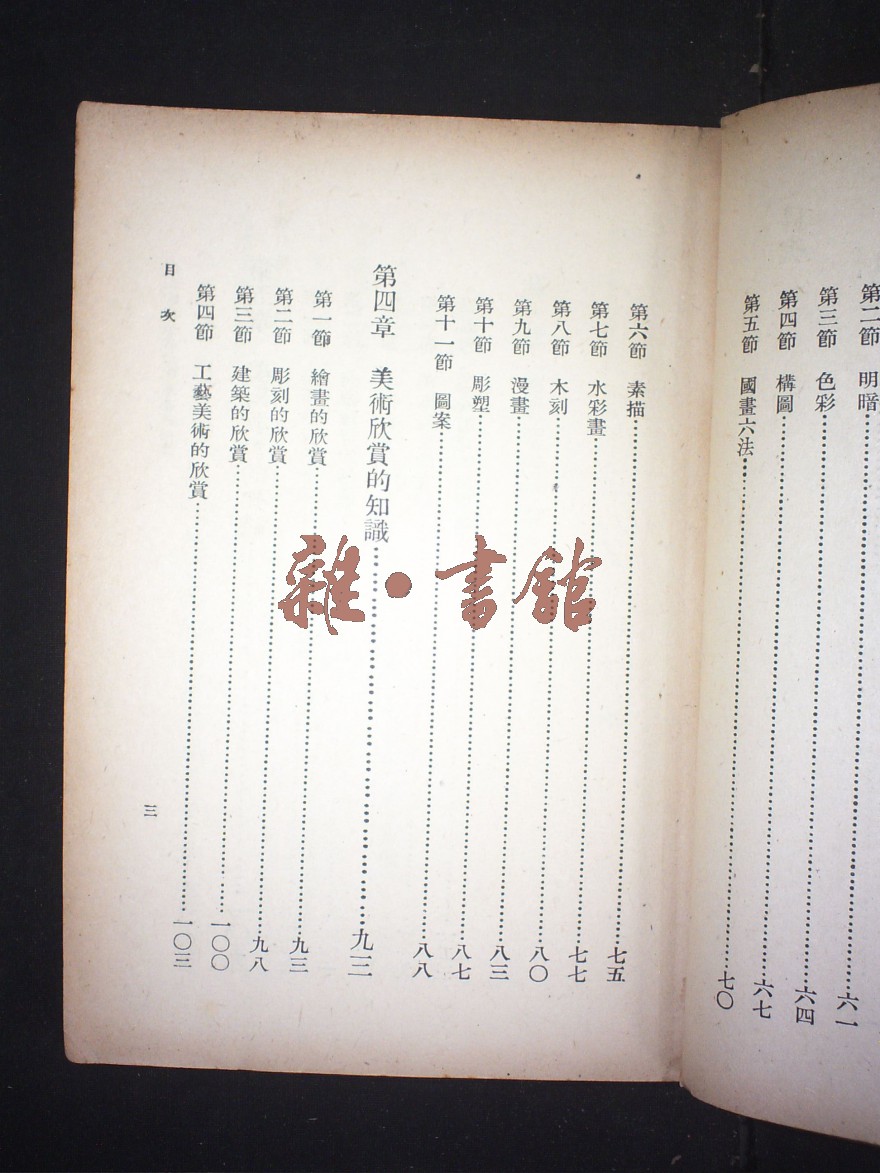 第二節 明暗……六一
第三節 色彩……六四
第四節 構圖……六七
第五節 國畫六法……七〇
第六節 素描……七五
第七節 水彩畫……七七
第八節 木刻……八〇
第九節 漫畫……八三
第十節 彫塑……八七
第十一節 圖案……八八
第四章 美術欣賞的知識……九三
第一節 繪畫的欣賞……九三
第二節 彫刻的欣賞……九八
第三節 建築的欣賞……一〇〇
第四節 工藝美術的欣賞……一〇三
目次
三
雜·書館